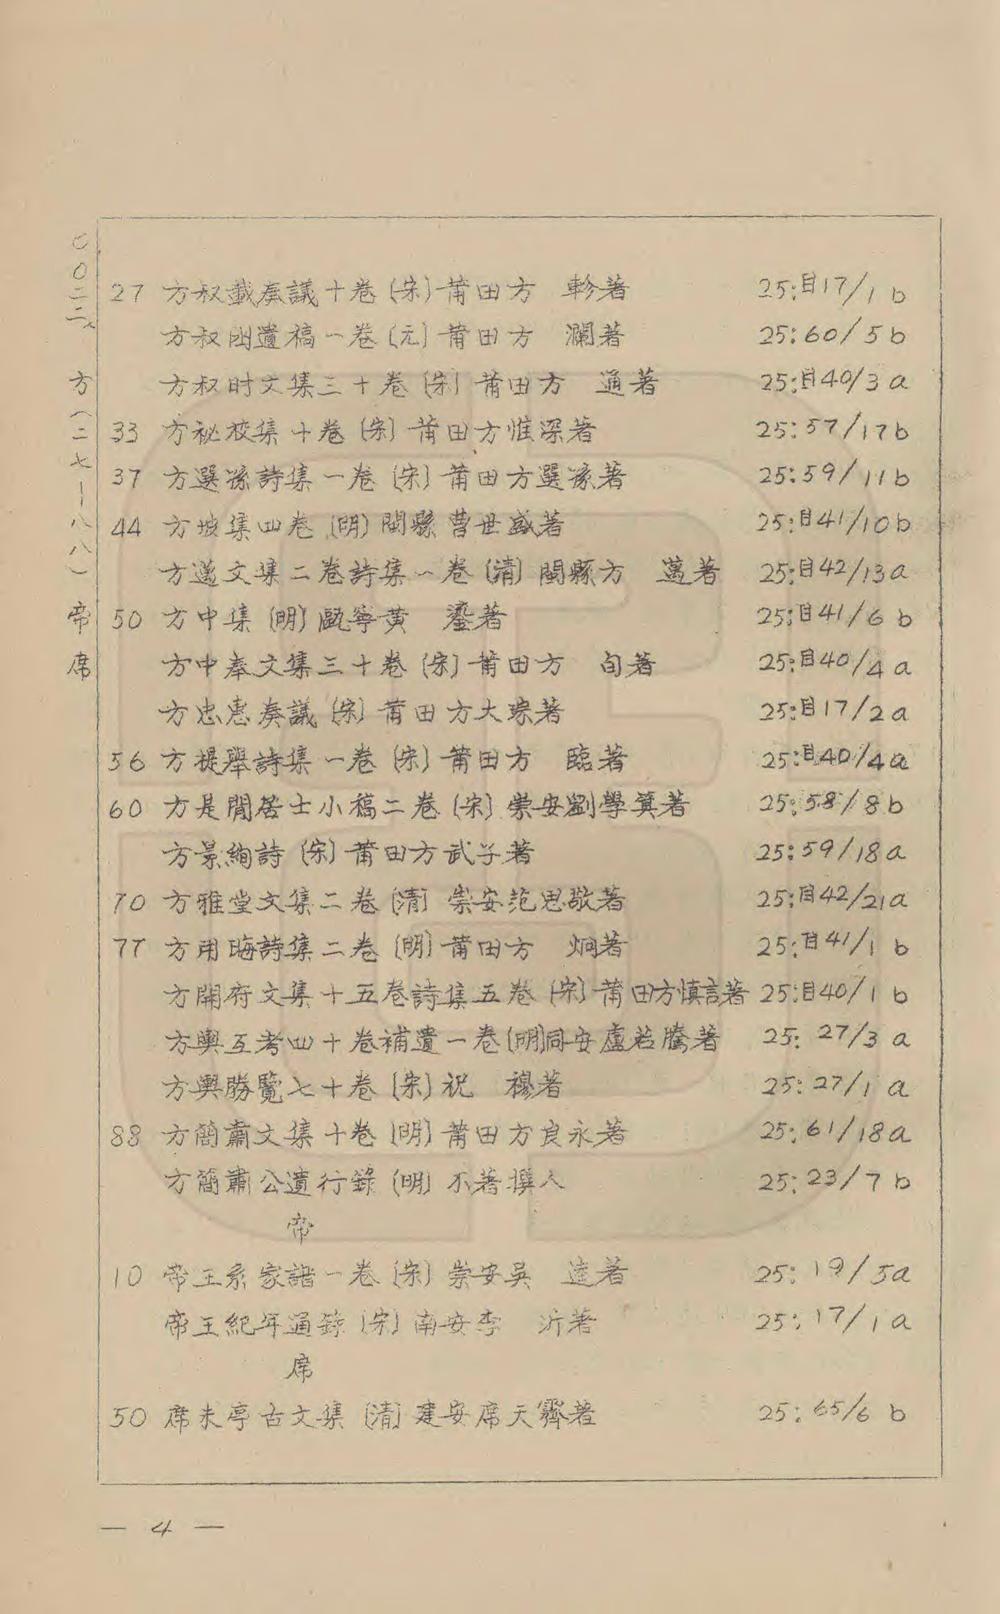 〇〇二二 方(二七—八八)帝席
27 方叔載奏議十卷〔宋〕莆田方 軫著 25:目17/1 b
方叔困遺稿一卷〔元〕莆田方 瀾著 25:60/5 b
方叔时文集三十卷〔宋〕莆田方 通著 25:目40/3 a
33 方祕校集十卷〔宋〕莆田方惟深著 25:57/17b
37 方選孫詩集一卷〔宋〕莆田方選孫著 25:59/11b
44 方坡集四卷〔明〕閩縣曹世盛著 25:目41/10b
方邁文集二卷詩集一卷〔清〕閩縣方 邁著 25:目42/13a
50 方中集〔明〕甌寧黃 鏊著 25:目41/6 b
方中奉文集三十卷〔宋〕莆田方 旬著 25:目40/4 a
方忠惠奏議〔宋〕莆田方大琮著 25:目17/2a
56 方提舉詩集一卷〔宋〕莆田方 臨著 25:目40/4a
60 方是閒居士小稿二卷〔宋〕崇安劉學箕著 25:58/8b
方景絢詩〔宋〕莆田方武子著 25:59/18a
70 方雅堂文集二卷〔清〕崇安范思敬著 25:目42/21a
77 方用晦詩集二卷〔明〕莆田方 炯著 25:目41/1 b
方開府文集十五卷詩集五卷〔宋〕莆田方慎言著 25:目40/1 b
方輿互考四十卷補遺一卷〔明〕同安盧若騰著 25:27/3 a
方輿勝覽七十卷〔宋〕祝 穆著 25:27/1 a
88 方簡肅文集十卷〔明〕莆田方良永著 25:61/18a
方簡肅公遺行錄〔明〕不著撰人 25:23/7 b
帝
10 帝王系家譜一卷〔宋〕崇安吳 逵著 25:19/5a
帝王紀年通錄〔宋〕南安李 沂著 25:17/1 a
席
50 席朱亭古文集〔清〕建安席天霽著 25:65/6 b
— 4 —